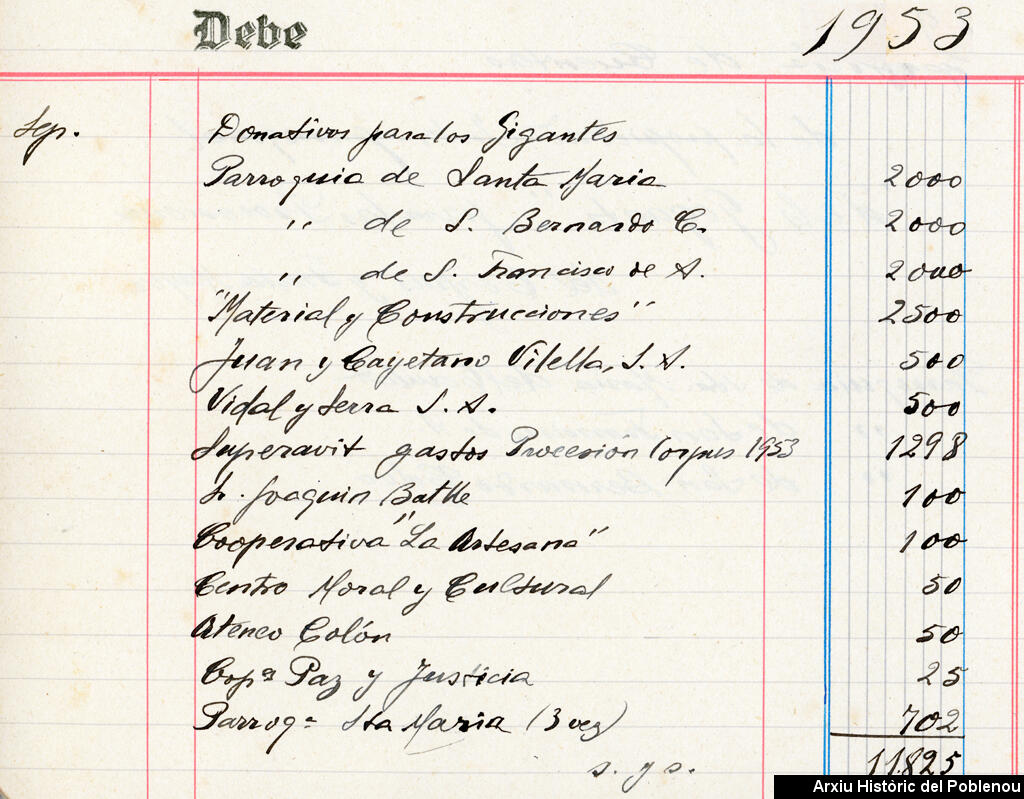 Debe 1953
Sep. Donativos para los Gigantes
Parroquia de Santa Maria 2000
" de S. Bernardo C. 2000
" de S. Francisco de A. 2000
"Material y Construcciones" 2500
Juan y Cayetano Vilella, S. A. 500
Vidal y Serra S. A. 500
Superavit gastos Procesion Corpus 1953 1298
Sr. Joaquin Batlle 100
Cooperativa "La Artesana" 100
Centro Moral y Cultural 50
Ateneo Colón 50
Copª Paz y Justicia 25
Parroqª Sta Maria (3 vez) 702
s. y o. 11.825
Arxiu Històric del Poblenou